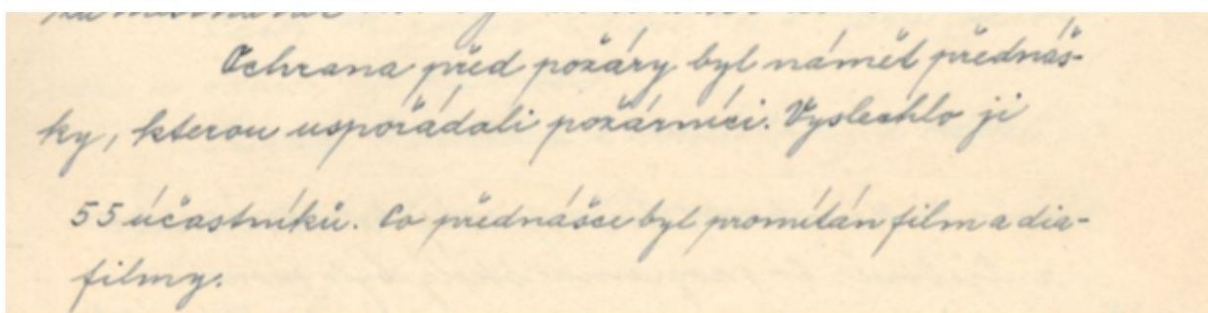 Ochrana před požáry byl námět přednáš-
ky, kterou uspořádali požárníci. Vyslechlo ji
55 účastníků. Po přednášce byl promítán film a dia-
filmy.